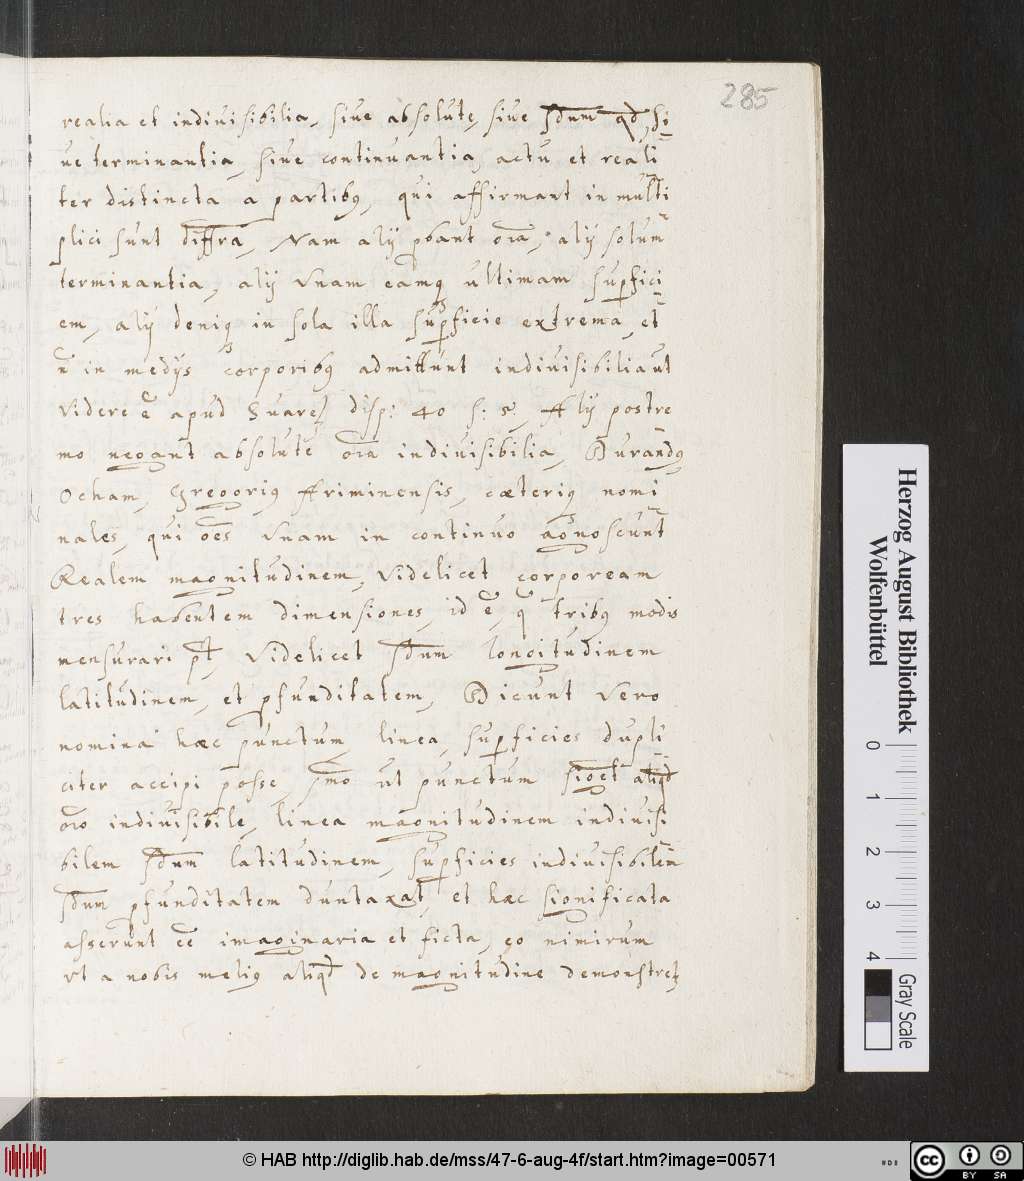 285
realia et indiuisibilia, siue absolute, siue sdum qd, si
ue terminantia, siue continuantia, actu et reali
ter distincta a partibꝰ, qui affirmant in multi
plici sunt diffra, Nam alij pbant oia, alij solum
terminantia, alij vnam eamq ultimam supfici
em, alij deniq in sola illa supficie extrema, et
n in medijs corporibꝰ admittunt indiuisibilia ut
videre ē apud Suarez disp: 40 s: 5, Alij postre
mo negant absolute oia indiuisibilia, Durandꝰ
Ocham, Gregoriꝰ Ariminensis, cæteriq nomi
nales, qui oēs vnam in continuo agnoscunt
Realem magnitudinem, videlicet corpoream
tres habentem dimensiones, id ē, q̄ tribꝰ modis
mensurari pt, videlicet sdum longitudinem
latitudinem, et pfunditatem, Dicunt vero
nomina hæc punctum, linea, supficies dupli
citer accipi posse, pmo ut punctum sigct aliqd
oīo indiuisibile, linea magnitudinem indiuisi
bilem sdum latitudinem, supficies indiuisibilem
sdum pfunditatem duntaxat, et hæc significata
asserunt eē imaginaria et ficta, eo nimirum
vt a nobis meliꝰ aliqd de magnitudine demonstret
Herzog August Bibliothek
Wolfenbüttel
0 1 2 3 4
Gray Scale
© HAB http://diglib.hab.de/mss/47-6-aug-4f/start.htm?image=00571
cc BY SA